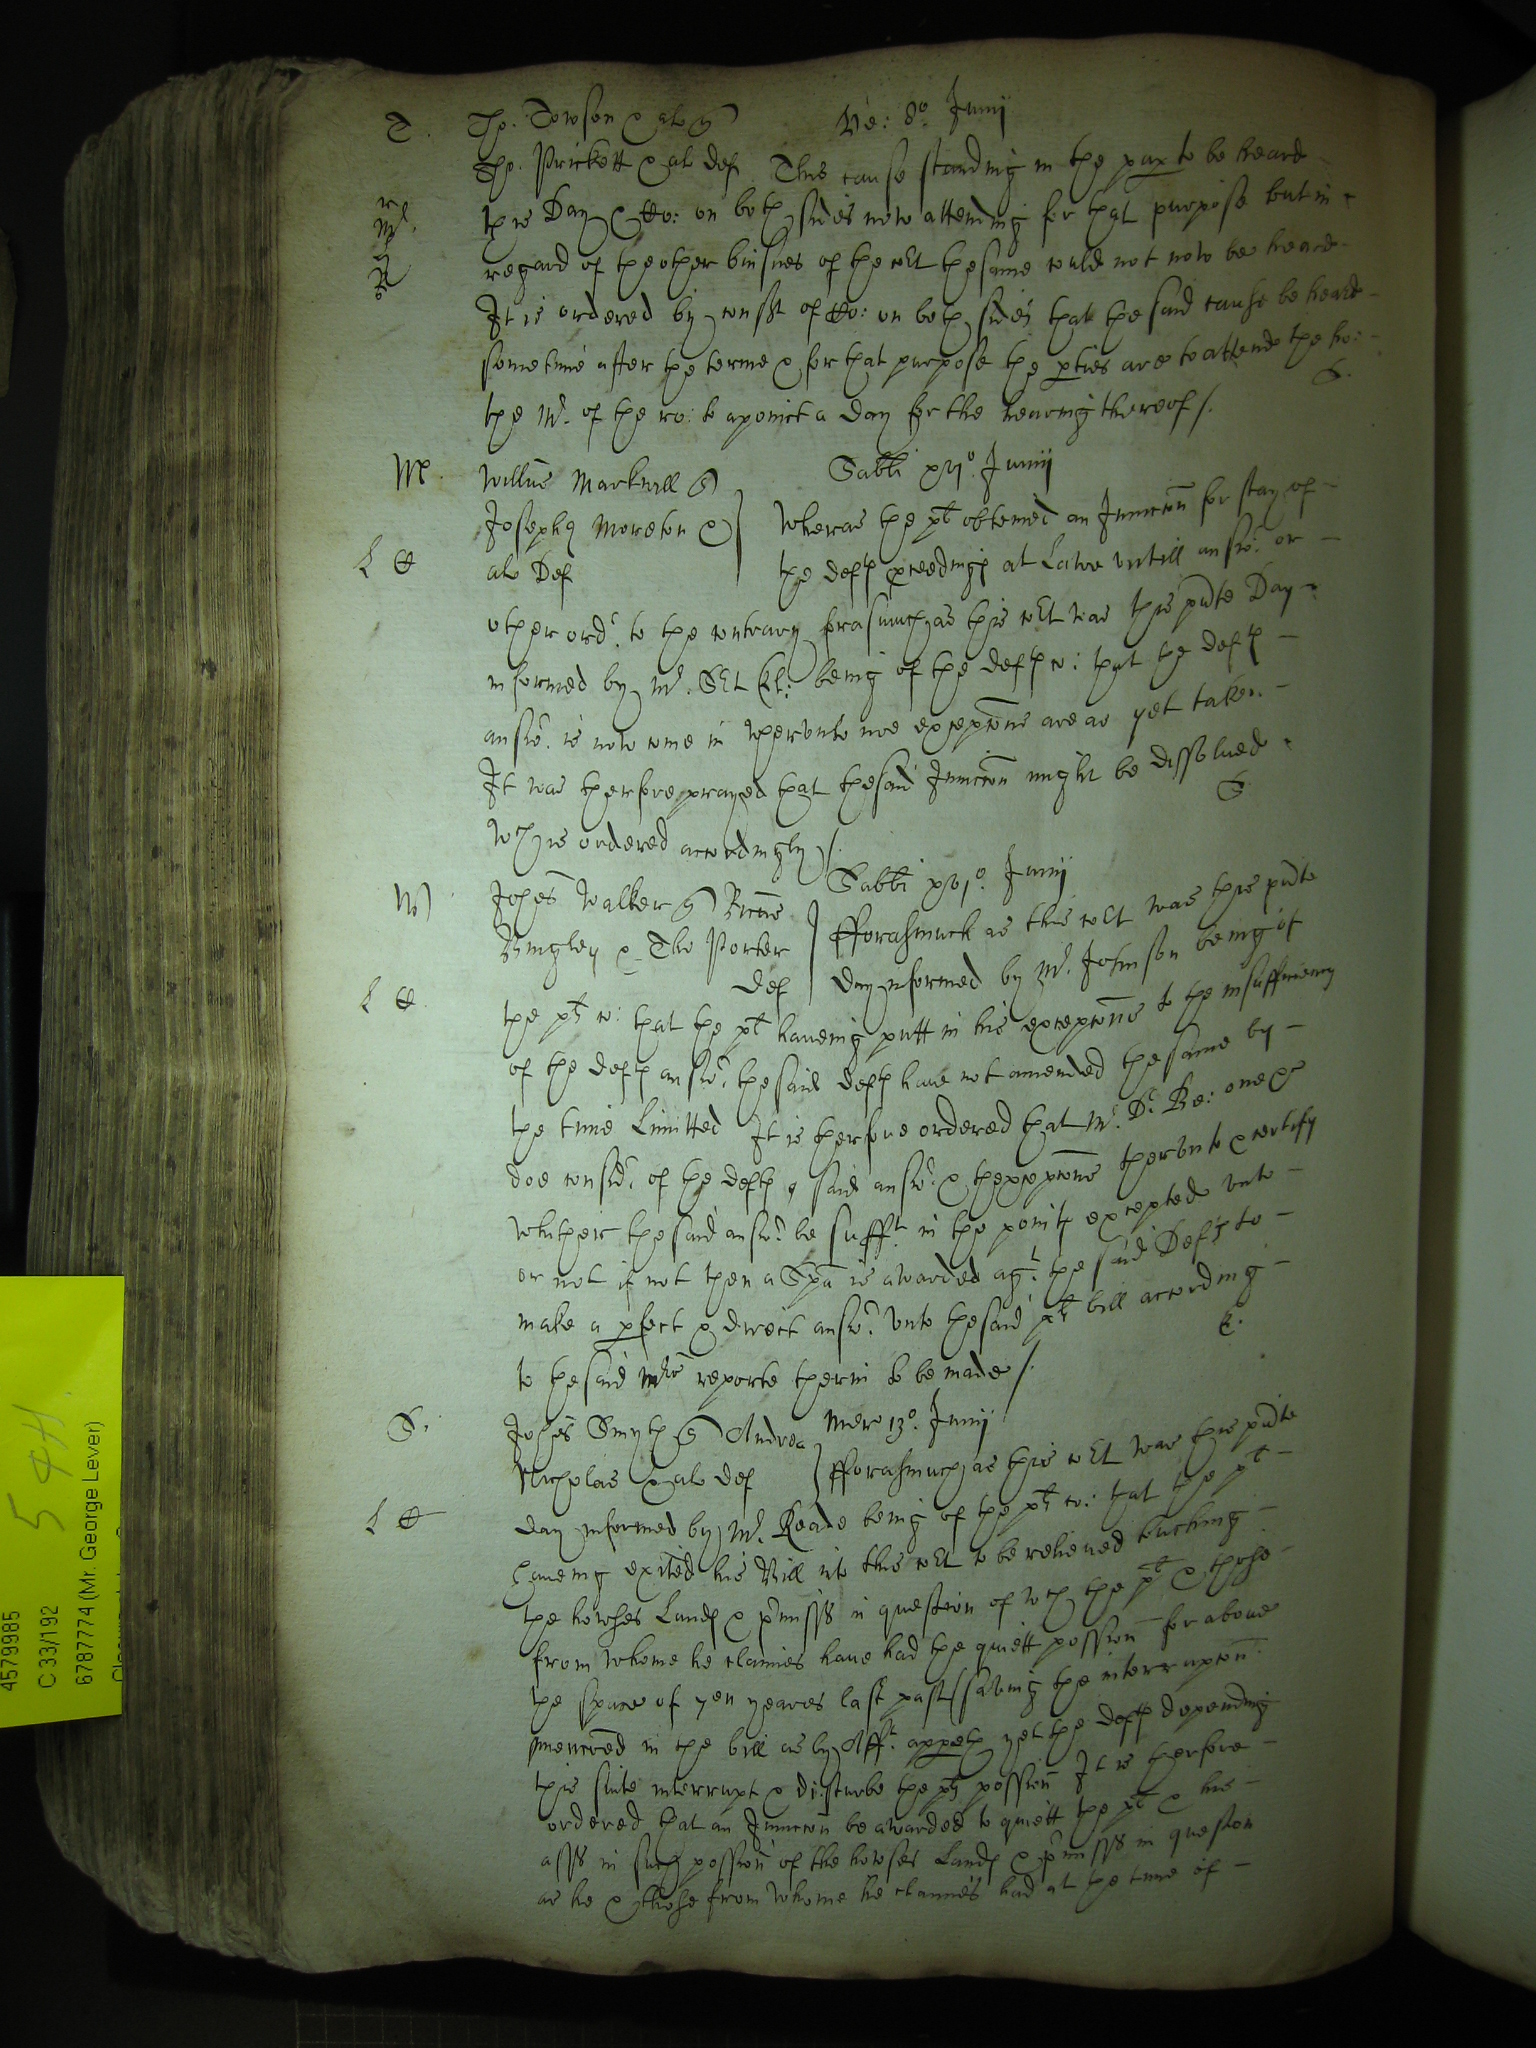 T. Tho. Towson & al q Ve: 8o. Junij
Tho. Prickett & al def. This cause standing in the pap to be heard
this Day & Co: on both sides now attending for that purpose but in
regard of the other busines of the Co't the same could not now be heard
It is ordered by consent of Co: on both sides that the said cause be heard
sometime after the terme & for that purpose the p'ties are to attend the ho:
the Mr. of the ro: to apoinct a day for the hearing thereof /.
S.
M. Willms Marknell q Sabbi xvjo. Junij
Josephq Moreton & Wheras the pl't obteined an Iniunccon for stay of
al Def the defts p'ceedings at Lawe vntill answ: or
other ord'r. to the contrary forasmuch as this Co't was this p'nte Day
informed by Mr. being of the defts co: that the defts
answ'r. is now come in Wherunto noe excepcons are as yet taken
It was therfore prayed that the said Iniunccon might be dissolued
wch is ordered accordingly /.
S
W Johes Walker q Ricus Sabbi xvjo. Junij
Bingley & Tho Porter fforasmuch as this Co't was this p'nte
Def Day informed by Mr. Johnson being of
the plts co: that the pl't haueing putt in his excepcons to the insufficiency
of the defts answ'r. the said defts haue not amended the same by
the time Limitted It is therfore ordered that Mr. Dr. Re: one &c
doe consid'r. of the defts said answ'r. & the excepcons therunto & certify
whither the said answ'r. be sufft. in the points excepted vnto
or not if not then a Spa is awarded agt. the said Defts to
make a p'fect & direct answ'r. vnto the said plts bill according
to the said Mrs reporte therin to be made /.
S. Johes Smyth q Andrea Mer 13o. Junij
Nicholas & al def fforasmuch as this Co't was this p'nte
day informed by Mr. Reade being of the plts co: that the pl't
haueing exited his Bill into this Co't to be relieued touching
the howses Lands & p'misss in question of wch the pl't & those
from whome he claimes haue had the quiett possion for aboue
the space of yen yeares last past (saving the interrupcon
mencoed in the bill as by Afft. appeth yet the defts depending
this suite interrupt & disturbe the plts possion It is therfore
ordered that an Iniunccon be awarded to quiett the pl't & his
asss in such possion of the howses Lands & p'misss in question
as he & those from whome he claimes had at the time of
4579985
C 33/192
6787774 (Mr. George Lever)